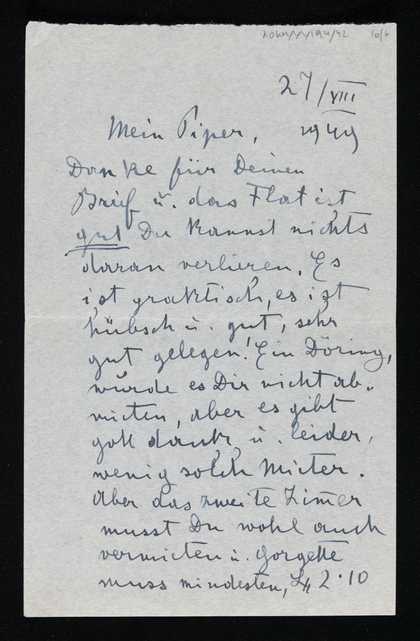 27/VIII
Mein Piper, 1949
Danke für Deinen
Brief u. das Flat ist
gut Du kannst nichts
daran verlieren. Es
ist praktisch, es ist
hübsch u. gut, sehr
gut gelegen! Ein Döring,
würde es Dir nicht ab-
mieten, aber es gibt
gott dank, u. leider,
wenig solch Mieter.
Aber das zweite Zimer
musst Du wohl auch
vermieten u. Gorgette
muss mindesten, 2.10